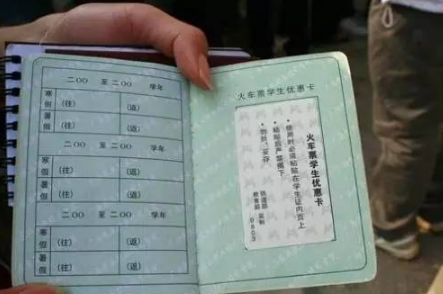 二〇〇 至 二〇〇 学年
寒假 (往) (返)
暑假 (往) (返)
二〇〇 至 二〇〇 学年
寒假 (往) (返)
暑假 (往) (返)
二〇〇 至 二〇〇 学年
寒假 (往) (返)
暑假 (往) (返)
火车票学生优惠卡
火车票学生优惠卡
使用时必须粘贴在学生证内页上
粘贴后严禁揭下
铁道部 监制
教育部